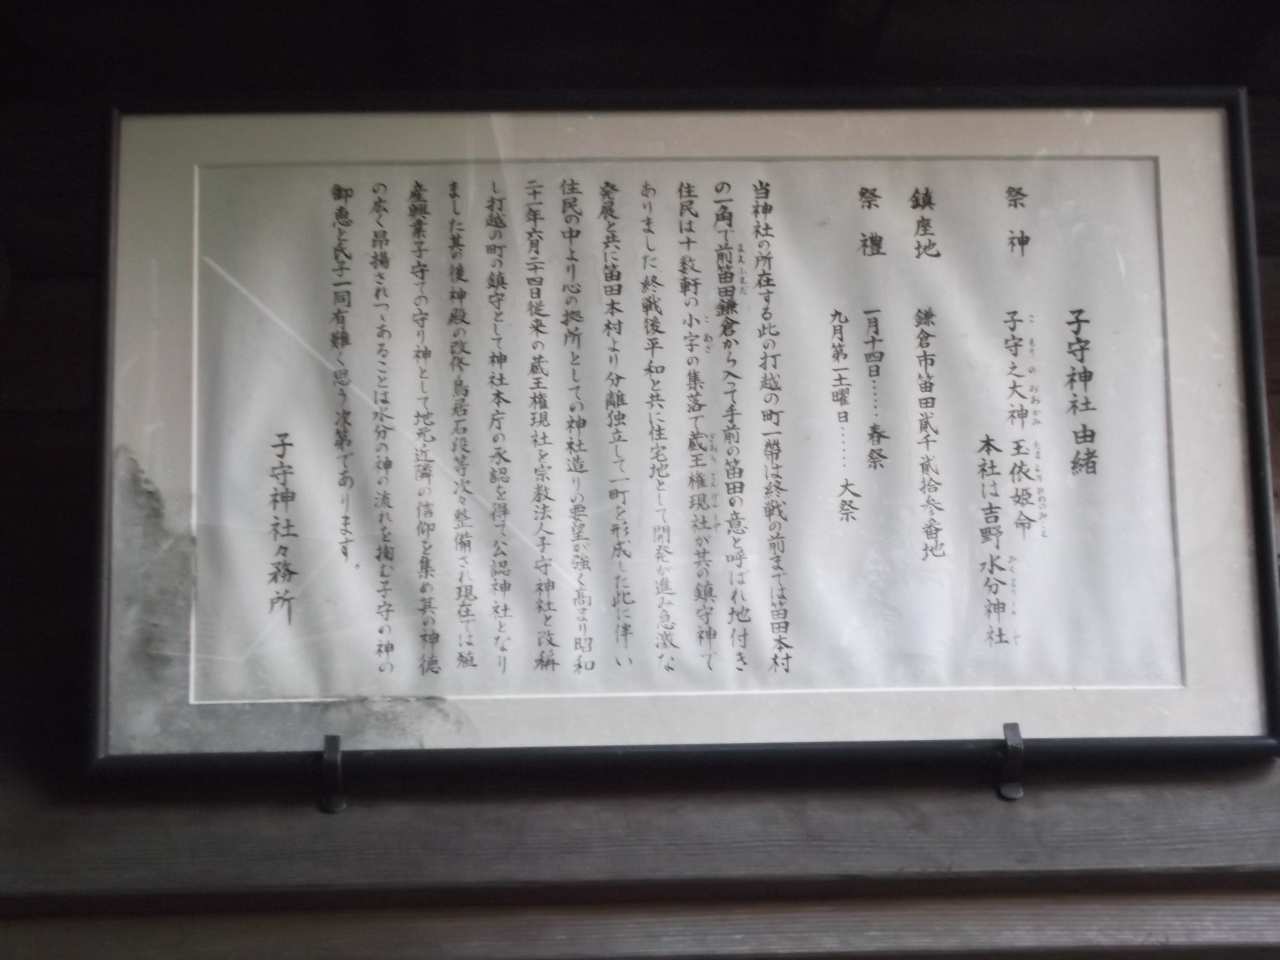 子守神社由緒
祭神 子守之大神 玉依姫命
本社は吉野水分神社
鎮座地 鎌倉市笛田貳千貳拾参番地
祭禮 一月十四日……春祭
九月第一土曜日……大祭
当神社の所在する此の打越の町一帶は終戦の前までは笛田本村
の一角で前笛田鎌倉から入って手前の笛田の意と呼ばれ地付き
住民は十数軒の小字の集落で蔵王権現社が其の鎮守神で
ありました終戦後平和と共に住宅地として開発が進み急激な
発展と共に笛田本村より分離独立して一町を形成した此に伴い
住民の中より心の拠所としての神社造りの要望が強く高まり昭和
二十一年六月二十四日従来の蔵王権現社を宗教法人子守神社と改稱
し打越の町の鎮守として神社本庁の承認を得て公認神社となり
ました其の後神殿の改修鳥居石段等次々整備され現在では殖
産興業子守ての守り神として地元近隣の信仰を集め其の神徳
の広く昂揚されつゝあることは水分の神の流れを掬む子守の神の
御恵と氏子一同有難く思う次第であります。
子守神社々務所